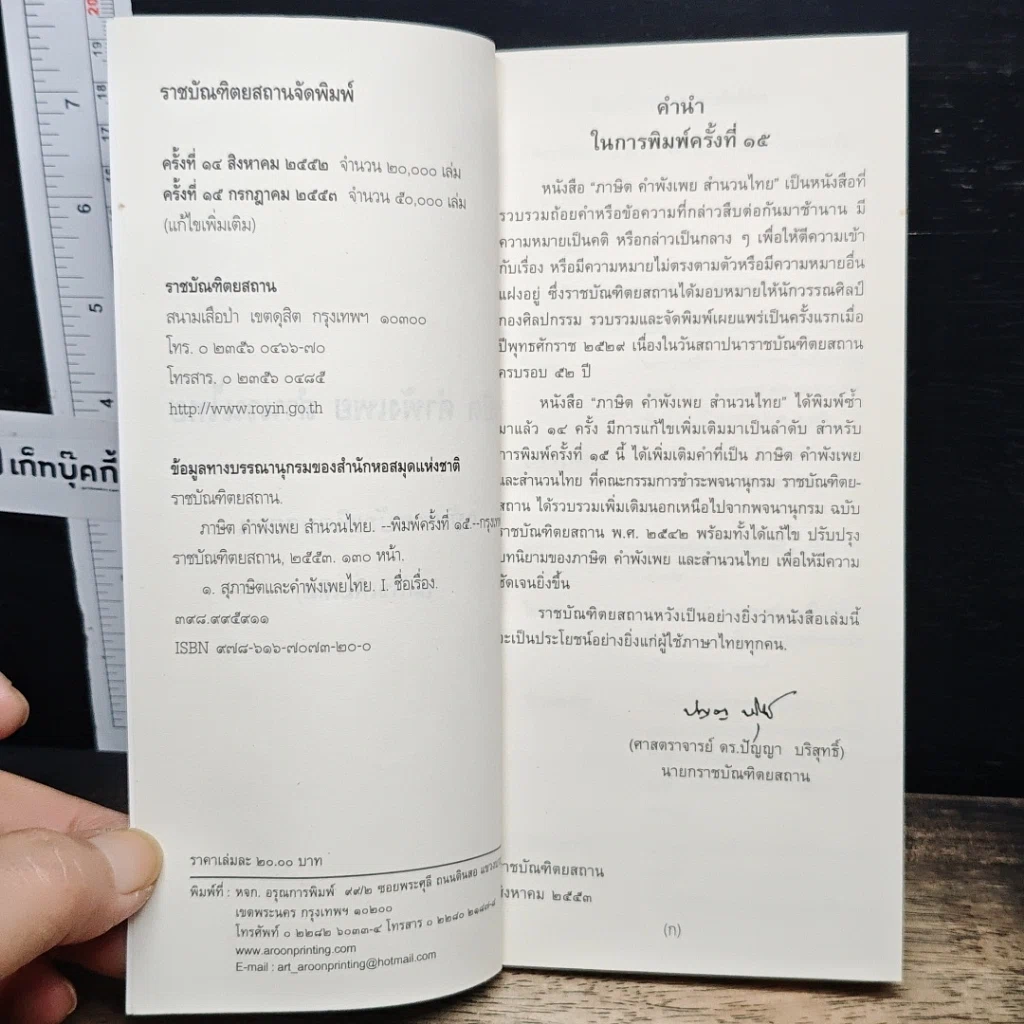 ราชบัณฑิตยสถานจัดพิมพ์
ครั้งที่ ๑๔ สิงหาคม ๒๕๕๒ จำนวน ๒๐,๐๐๐ เล่ม
ครั้งที่ ๑๕ กรกฎาคม ๒๕๕๓ จำนวน ๕๐,๐๐๐ เล่ม
(แก้ไขเพิ่มเติม)
ราชบัณฑิตยสถาน
สนามเสือป่า เขตดุสิต กรุงเทพฯ ๑๐๓๐๐
โทร. ๐ ๒๓๕๖ ๐๔๖๖-๗๐
โทรสาร. ๐ ๒๓๕๖ ๐๔๘๕
http://www.royin.go.th
ข้อมูลทางบรรณานุกรมของสำนักหอสมุดแห่งชาติ
ราชบัณฑิตยสถาน.
ภาษิต คำพังเพย สำนวนไทย. --พิมพ์ครั้งที่ ๑๕.--กรุงเท
ราชบัณฑิตยสถาน, ๒๕๕๓. ๑๓๐ หน้า.
๑. สุภาษิตและคำพังเพยไทย. I. ชื่อเรื่อง.
๓๙๘.๙๙๕๙๑๑
ISBN ๙๗๘-๖๑๖-๗๐๗๓-๒๐-๐
ราคาเล่มละ ๒๐.๐๐ บาท
พิมพ์ที่ : หจก. อรุณการพิมพ์ ๙๙/๒ ซอยพระศุลี ถนนดินสอ แขวง
เขตพระนคร กรุงเทพฯ ๑๐๒๐๐
โทรศัพท์ ๐ ๒๒๘๒ ๖๐๓๓-๔ โทรสาร ๐ ๒๒๘๐ ๒๑๘๗-๘
www.aroonprinting.com
E-mail : art_aroonprinting@hotmail.com
คำนำ
ในการพิมพ์ครั้งที่ ๑๕
หนังสือ “ภาษิต คำพังเพย สำนวนไทย” เป็นหนังสือที่
รวบรวมถ้อยคำหรือข้อความที่กล่าวสืบต่อกันมาช้านาน มี
ความหมายเป็นคติ หรือกล่าวเป็นกลาง ๆ เพื่อให้ตีความเข้า
กับเรื่อง หรือมีความหมายไม่ตรงตามตัวหรือมีความหมายอื่น
แฝงอยู่ ซึ่งราชบัณฑิตยสถานได้มอบหมายให้นักวรรณศิลป์
กองศิลปกรรม รวบรวมและจัดพิมพ์เผยแพร่เป็นครั้งแรกเมื่อ
ปีพุทธศักราช ๒๕๒๙ เนื่องในวันสถาปนาราชบัณฑิตยสถาน
ครบรอบ ๕๒ ปี
หนังสือ “ภาษิต คำพังเพย สำนวนไทย” ได้พิมพ์ซ้ำ
มาแล้ว ๑๔ ครั้ง มีการแก้ไขเพิ่มเติมมาเป็นลำดับ สำหรับ
การพิมพ์ครั้งที่ ๑๕ นี้ ได้เพิ่มเติมคำที่เป็น ภาษิต คำพังเพย
และสำนวนไทย ที่คณะกรรมการชำระพจนานุกรม ราชบัณฑิตย-
สถาน ได้รวบรวมเพิ่มเติมนอกเหนือไปจากพจนานุกรม ฉบับ
ราชบัณฑิตยสถาน พ.ศ. ๒๕๔๒ พร้อมทั้งได้แก้ไข ปรับปรุง
บทนิยามของภาษิต คำพังเพย และสำนวนไทย เพื่อให้มีความ
ชัดเจนยิ่งขึ้น
ราชบัณฑิตยสถานหวังเป็นอย่างยิ่งว่าหนังสือเล่มนี้
จะเป็นประโยชน์อย่างยิ่งแก่ผู้ใช้ภาษาไทยทุกคน.
(ศาสตราจารย์ ดร.ปัญญา บริสุทธิ์)
นายกราชบัณฑิตยสถาน
ราชบัณฑิตยสถาน
สิงหาคม ๒๕๕๓
(ก)
เก็ทบุ๊คกี้
7
6
5
4
20
19
18
17